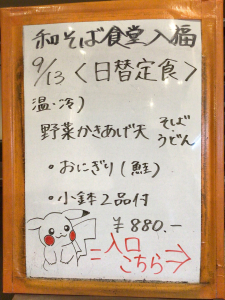 和そば食堂入福
9/13〈日替定食〉
温・冷)
野菜かきあげ天 そば
うどん
・おにぎり(鮭)
・小鉢2品付
¥880.-
=入口
こちら⇒